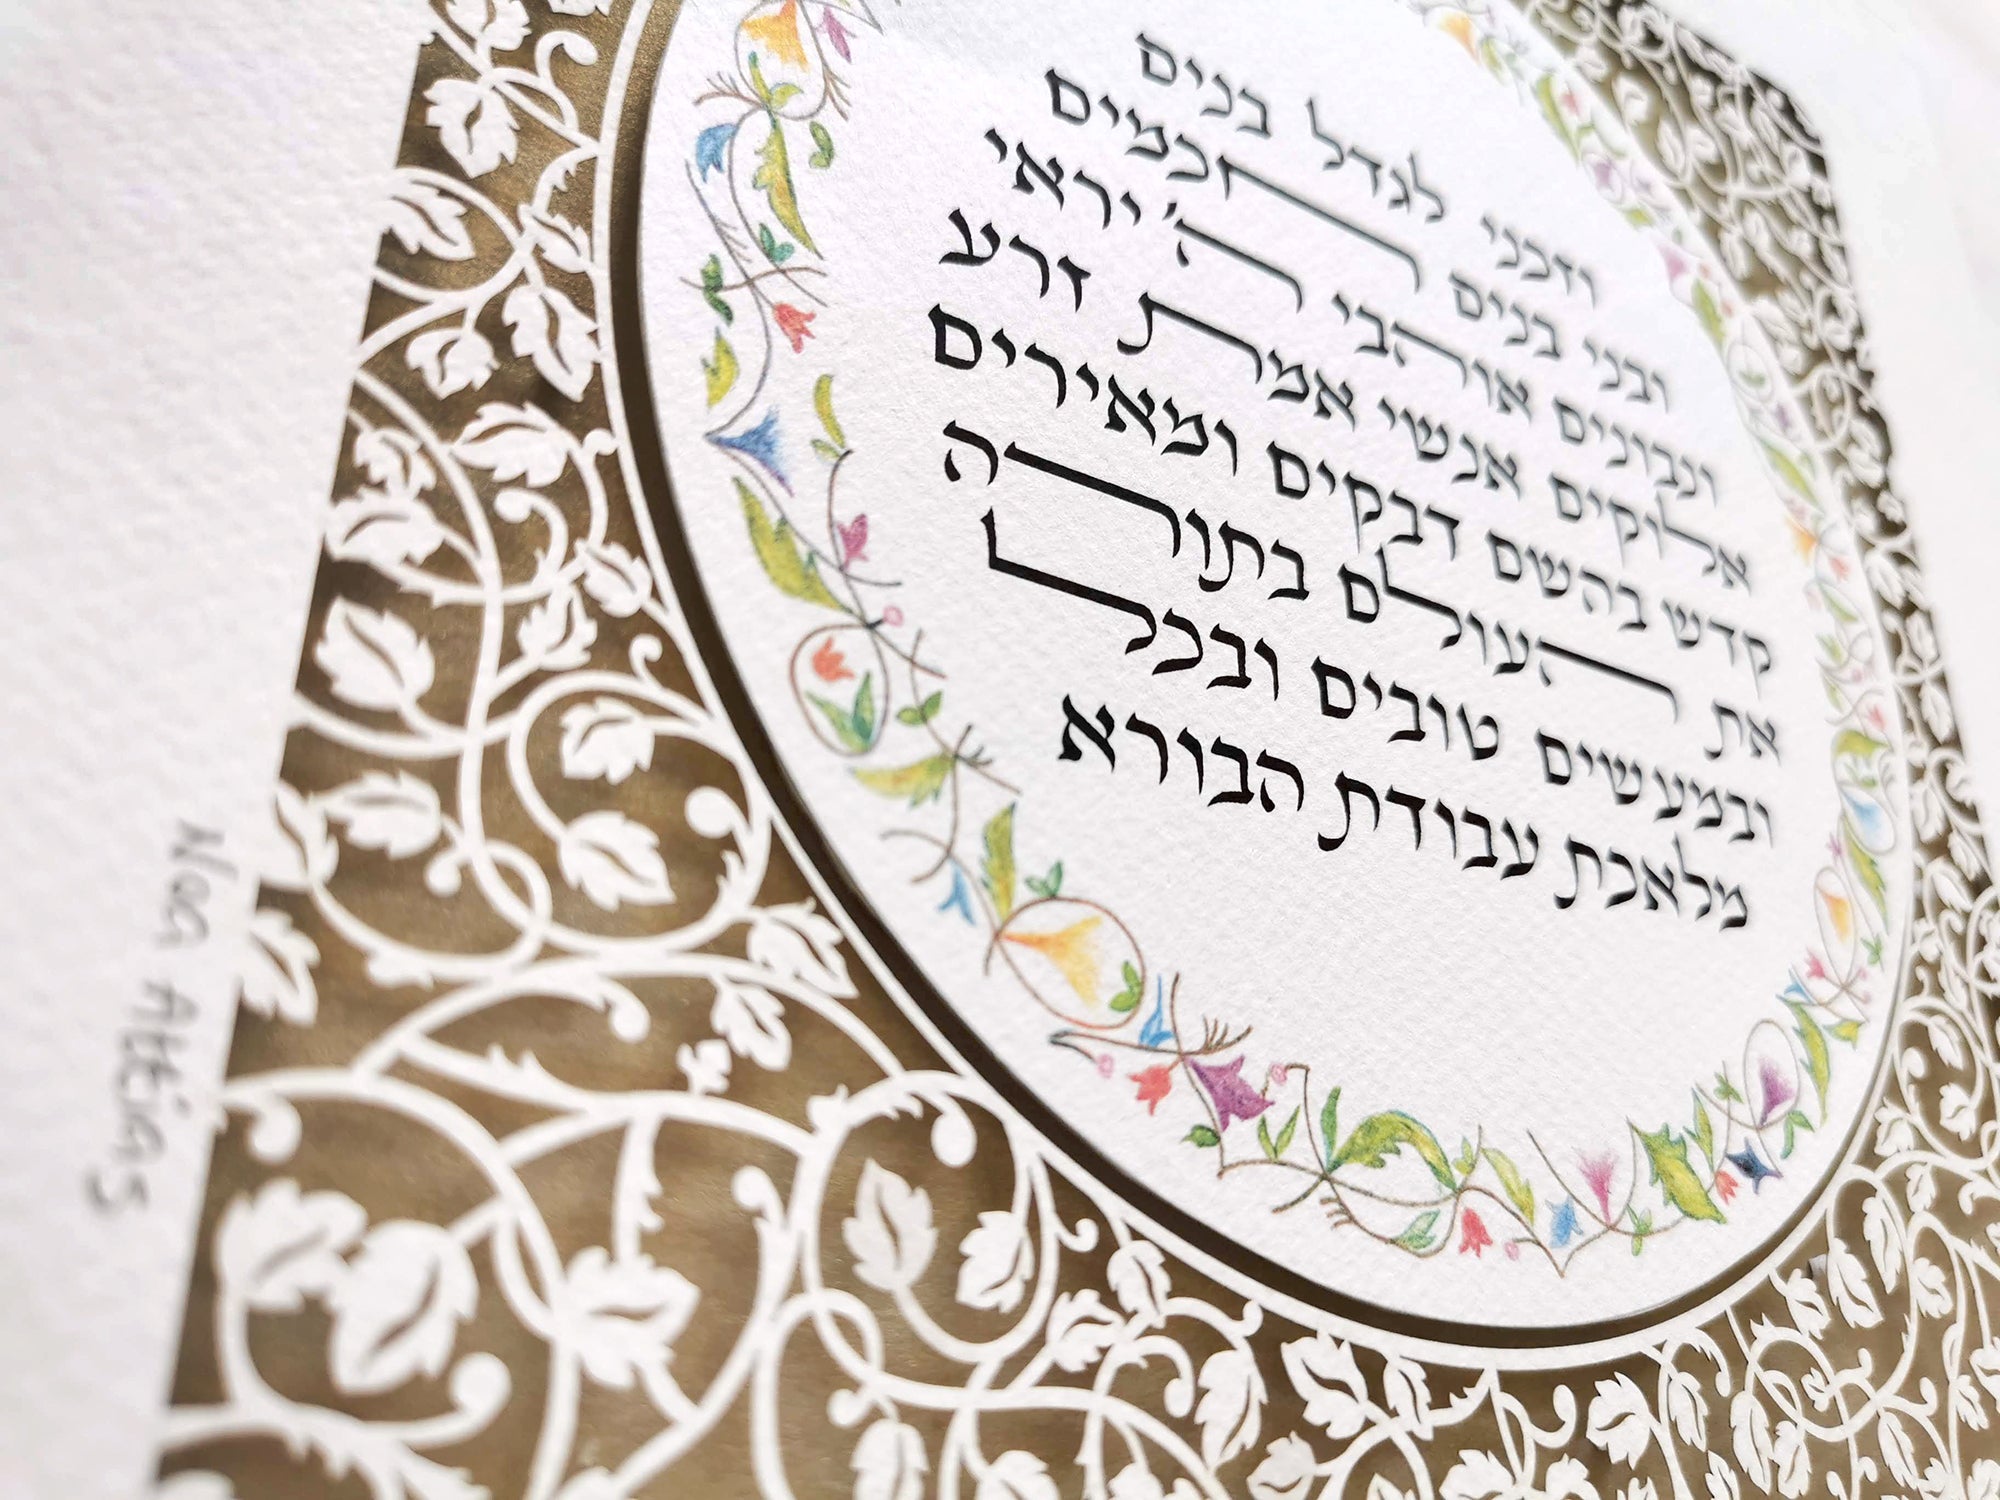 וזכני לגדל בנים
ובני בנים חכמים
ונבונים אוהבי ה' יראי
אלקים אנשי אמת זרע
קדש בהשם דבקים ומאירים
את העולם בתורה
ובמעשים טובים ובכל
מלאכת עבודת הבורא
Noa Attias